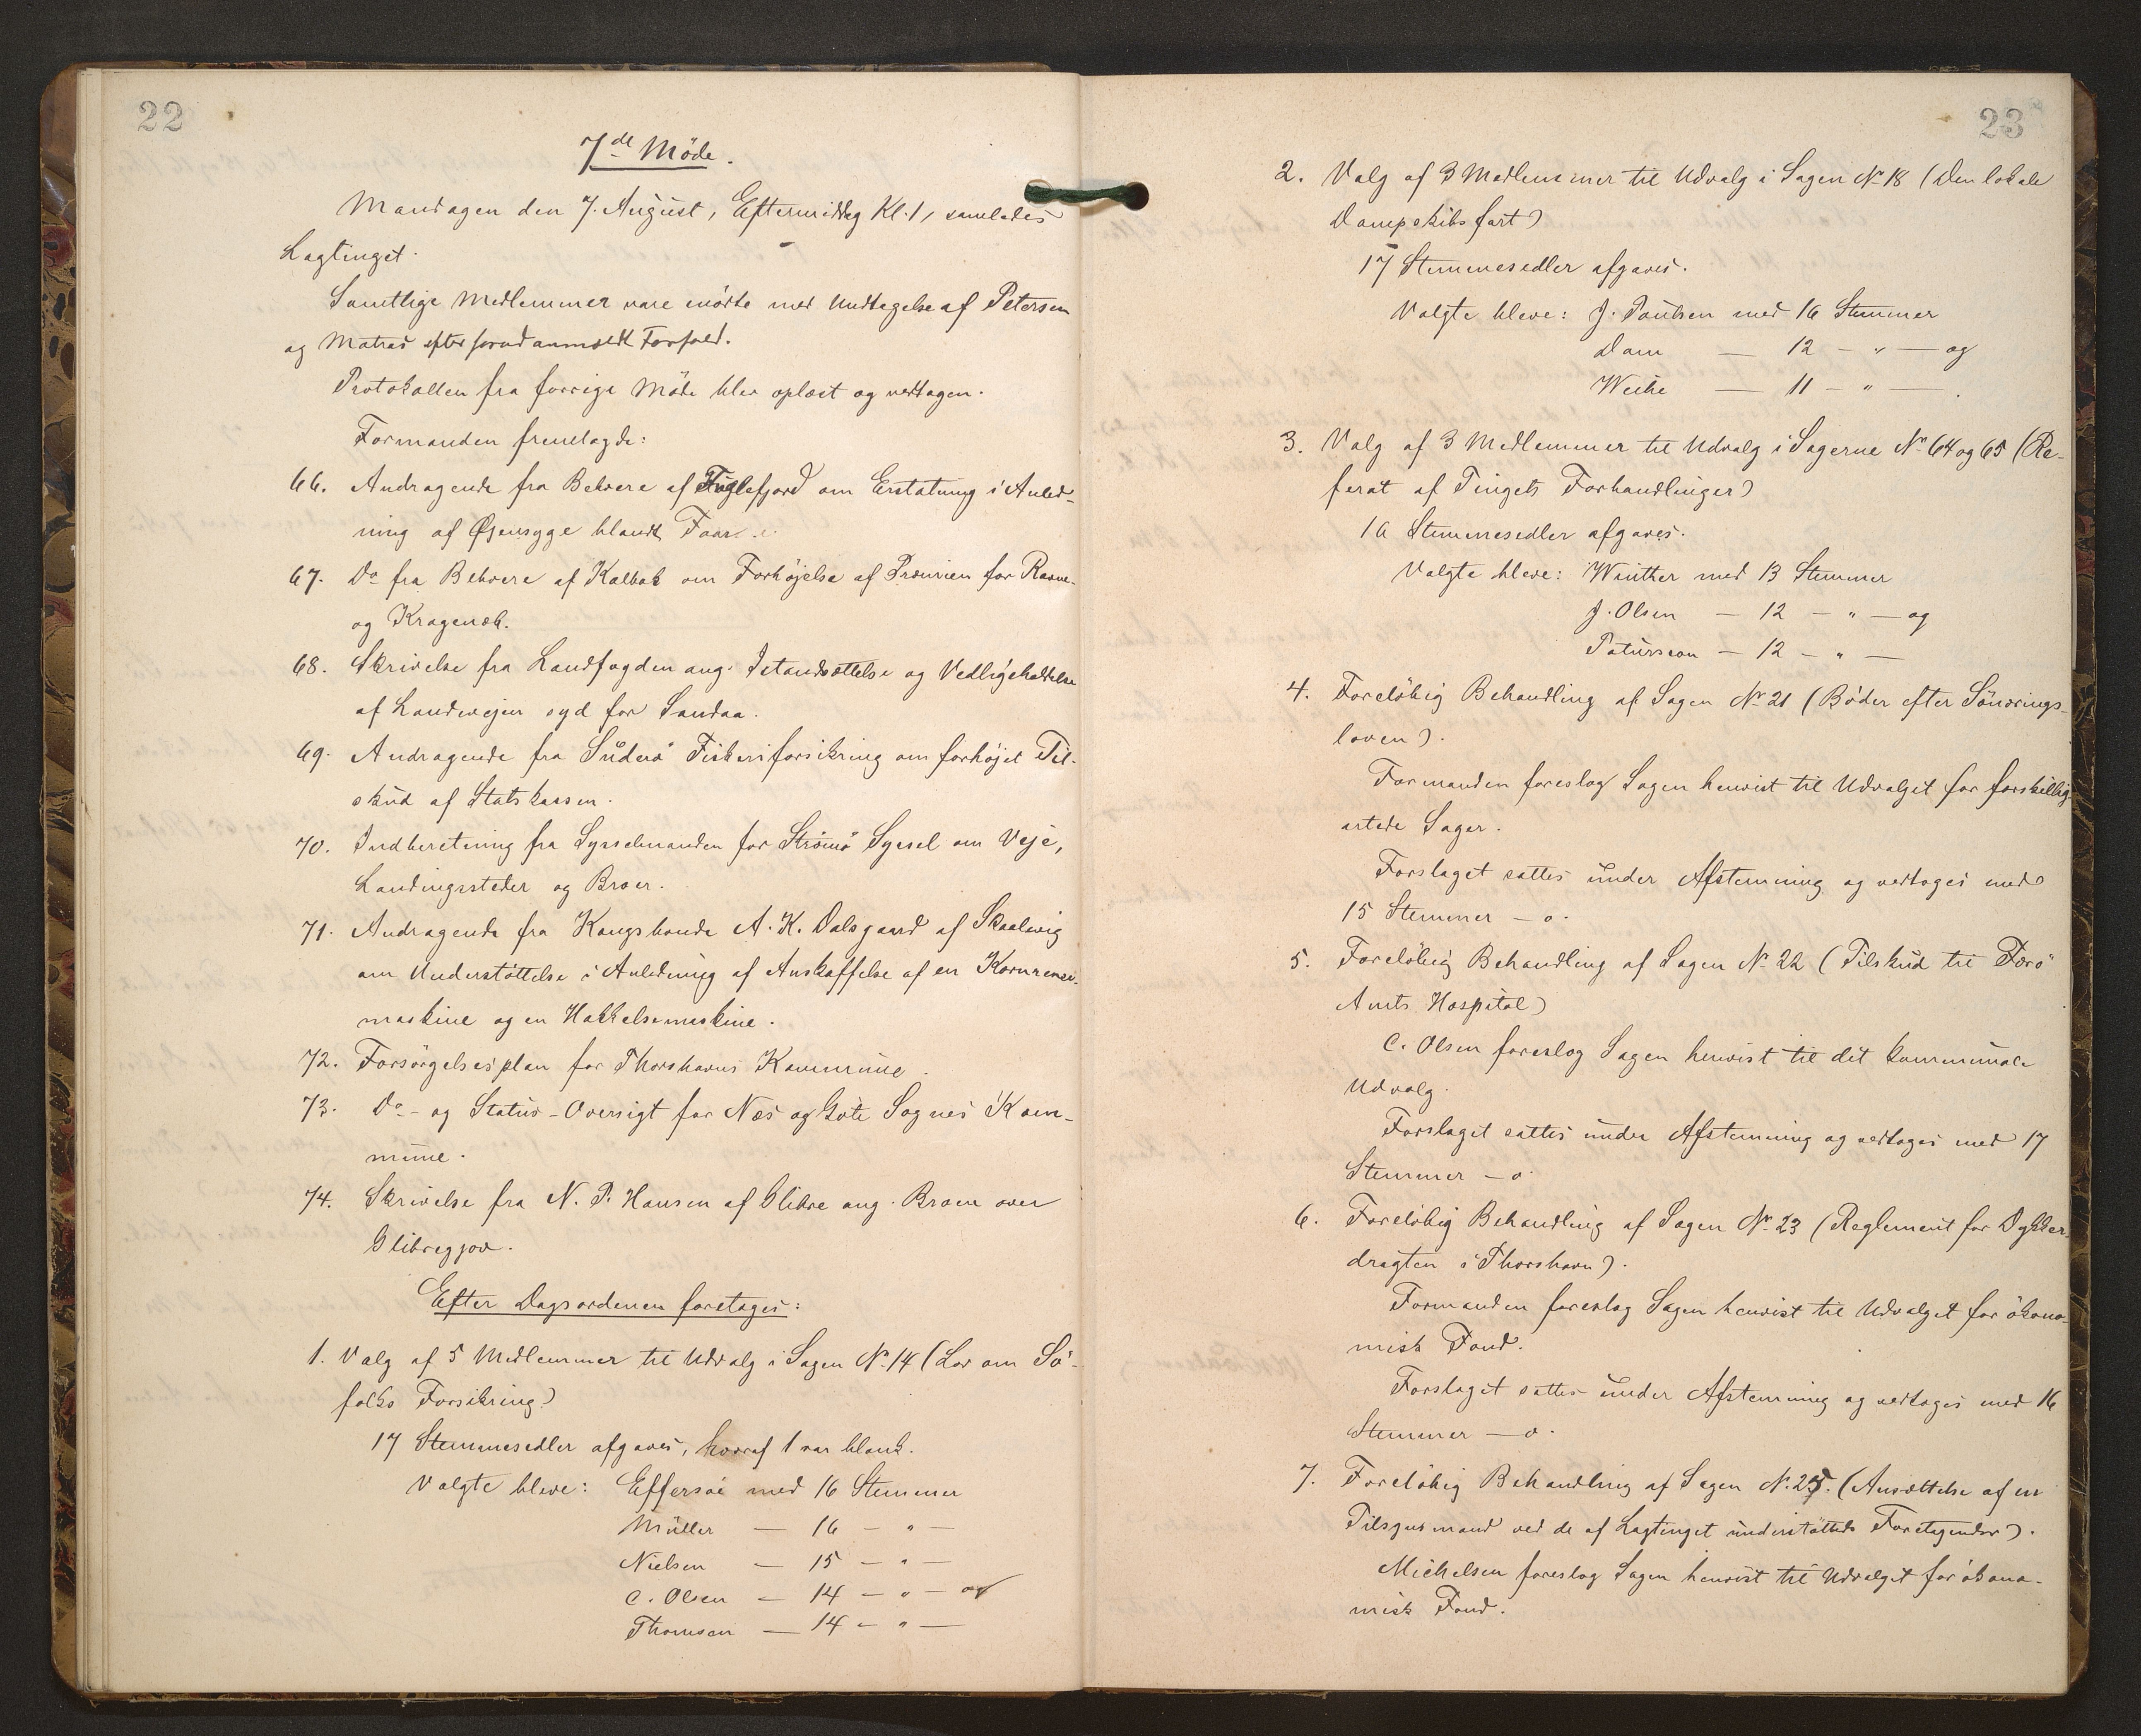 22
7de Möde.
Mandagen den 7. August, Eftermiddag Kl. 1, samledes
Lagtinget.
Samtlige Medlemmer vare mödte med Undtagelse af Petersen
og Matras efter forud anmeldt Forfald.
Protokollen fra forrige Möde blev oplæst og vedtagen.
Formanden fremlagde:
66. Andragende fra Beboere af Fuglefjord om Erstatning i Anled-
ning af Øjensyge blandt Faar.
67. Do fra Beboere af Kalbak om Forhöjelse af Præmien for Ravne-
og Kragenæb.
68. Skrivelse fra Landfogden ang. Istandsættelse og Vedligeholdelse
af Landevejen syd for Sandaa.
69. Andragende fra Suderö Fiskeriforsikring om forhöjet Til-
skud af Statskassen.
70. Indberetning fra Sysselmanden for Strömö Syssel om Veje,
Landingssteder og Broer.
71. Andragende fra Kongsbonde A. K. Dalsgaard af Skaalevig
om Understöttelse i Anledning af Anskaffelse af en Kornrense-
maskine og en Hakkelsemaskine.
72. Forsörgelsesplan for Thorshavns Kommune.
73. Do - og Status-Oversigt for Næs og Göte Sognes Kom-
mune.
74. Skrivelse fra N. P. Hansen af Glibre ang. Broen over
Glibregjov.
Efter Dagsordenen foretoges:
1. Valg af 5 Medlemmer til Udvalg i Sagen No 14 (Lov om Sö-
folks Forsikring)
17 Stemmesedler afgaves, hvoraf 1 var blank.
Valgte bleve: Effersöe med 16 Stemmer
Müller — 16 — " —
Nielsen — 15 — " —
C. Olsen — 14 — " — og
Thomsen — 14 — " —
23
2. Valg af 3 Medlemmer til Udvalg i Sagen No 18 (Den lokale
Dampskibsfart)
17 Stemmesedler afgaves.
Valgte bleve: J. Poulsen med 16 Stemmer
Dam — 12 — " — og
Weihe — 11 — " — .
3. Valg af 3 Medlemmer til Udvalg i Sagerne No 64 og 65 (Re-
ferat af Tingets Forhandlinger)
16 Stemmesedler afgaves.
Valgte bleve: Winther med 13 Stemmer
J. Olsen — 12 — " — og
Patursson — 12 — " —
4. Forelöbig Behandling af Sagen No 21 (Böder efter Sönorings-
loven).
Formanden foreslog Sagen henvist til Udvalget for forskellig-
artede Sager.
Forslaget sattes under Afstemning og vedtoges med
15 Stemmer — o.
5. Forelöbig Behandling af Sagen No 22 (Tilskud til Færö
Amts Hospital)
C. Olsen foreslog Sagen henvist til det kommunale
Udvalg.
Forslaget sattes under Afstemning og vedtoges med 17
Stemmer — o.
6. Forelöbig Behandling af Sagen No 23 (Reglement for Dykker-
dragten i Thorshavn).
Formanden foreslog Sagen henvist til Udvalget for ökono-
misk Fond.
Forslaget sattes under Afstemning og vedtoges med 16
Stemmer — o.
7. Forelöbig Behandling af Sagen No. 25. (Ansættelse af en
Tilsynsmand ved de af Lagtinget understöttede Foretagender).
Michelsen foreslog Sagen henvist til Udvalget for ökono-
misk Fond.